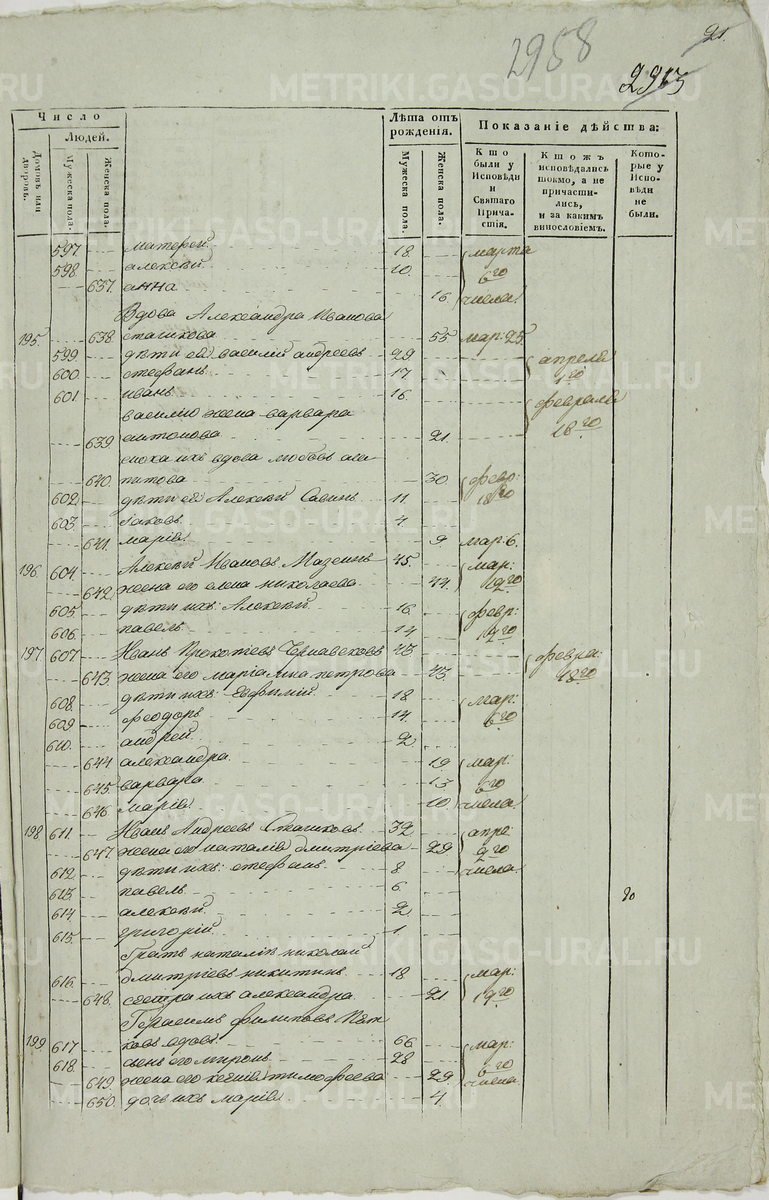 21.
2958
2913
Число
Людей.
Домовъ или дворовъ.
Мужеска пола.
Женска пола.
Лѣта отъ рожденія.
Мужеска пола.
Женска пола.
Показаніе дѣйства:
Кто были у Исповѣди и Святаго Причастія.
Ктожъ исповѣдались токмо, а не причастились, и за какимъ винословіемъ.
Которые у Исповѣди не были.
597 матфей 18 марта
598 алексѣй 10 6го
637 анна 16 числа
Вдова Александра Иванова
195 638 сташкова 55 мар: 25
599 дѣти ея василій андреевъ 29 апреля
600 стефанъ 17 1го
601 иванъ 16
василія жена варвара февраля
639 антонова 21 18го
сноха ихъ вдова любовь
640 30 февр:
602 дѣти ея Алексѣй Савинъ 11 18го
603 Іаковъ 4
641 марія 9 мар: 6.
196 604 Алексѣй Ивановъ Мазеинъ 45 мар:
642 жена его елена николаева 44 19го
605 дѣти ихъ: Алексѣй 16 февр:
606 павелъ 14 19го
197 607 Иванъ Прокопьевъ 43 февра:
643 жена его маріамна петрова 43 18го
608 дѣти ихъ: Евфимій 18 мар:
609 феодоръ 14 6го
610 андрей 2
644 александра 19 мар:
645 варвара 13 6го
646 марія 10 числа
198 611 Иванъ Андреевъ Сташковъ 32 апре:
647 жена его наталія дмитріева 29 2го
612 дѣти ихъ: стефанъ 8 числа
613 павелъ 6
614 алексѣй 2
615 григорій 1
братъ наталіи николай
616 дмитріевъ никитинъ 18 мар:
648 сестра ихъ александра 21 19го
Герасимъ филиповъ
199 617 ковъ вдовъ 66 мар:
618 сынъ его миронъ 28 6го
649 жена его ксенія тимофеева 29 числа
650 дочь ихъ марія 4
METRIKI.GASO-URAL.RU